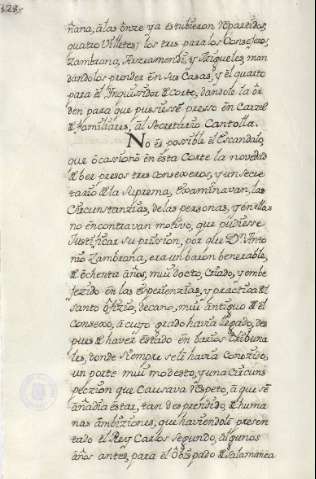 328.
ñana, à las onze ya estubieron repartidos,
quatro villetes; los tres para los Consejeros,
Zambrana, Arzeamendi, y Migueles, man
dandolos prender en sus Casas, y el quarto
para el Inquisidor de Corte, dandole la òr
den para que pusiesse presso en Carzel
de familiares, àl Secretario Cantolla.
No ès possible el Escandalo,
que òcasionò en èsta Corte la novedad
de ber pesos tres Consexeros, y un Secre
tario de la Suprema, Exsaminavan, las
Circunstanzias, de las personas, y en ellas
no encontravan motivo, que pudiesse
Justificar su prission, por que Dⁿ Anto
nio Zambrana, era un baron benerable,
de òchenta años, mui docto, Criado, y embe
jezido en las Experienzias, y practica del
Santo Ofizio, decano, mui antiguo de el
Consexo, à cuyo grado havia llegado, des
pues de haver estado en barios tribuna
les, donde siempre se le havia conozido,
un porte mui modesto, y una Circuns
peczion que Causava respeto, à que se
añadia èstar, tan desprendido, de huma
nas ambiziones, que haviendole presen
tado el Rey Carlos Segundo, algunos
años antes, para el Obispado de Salamanca